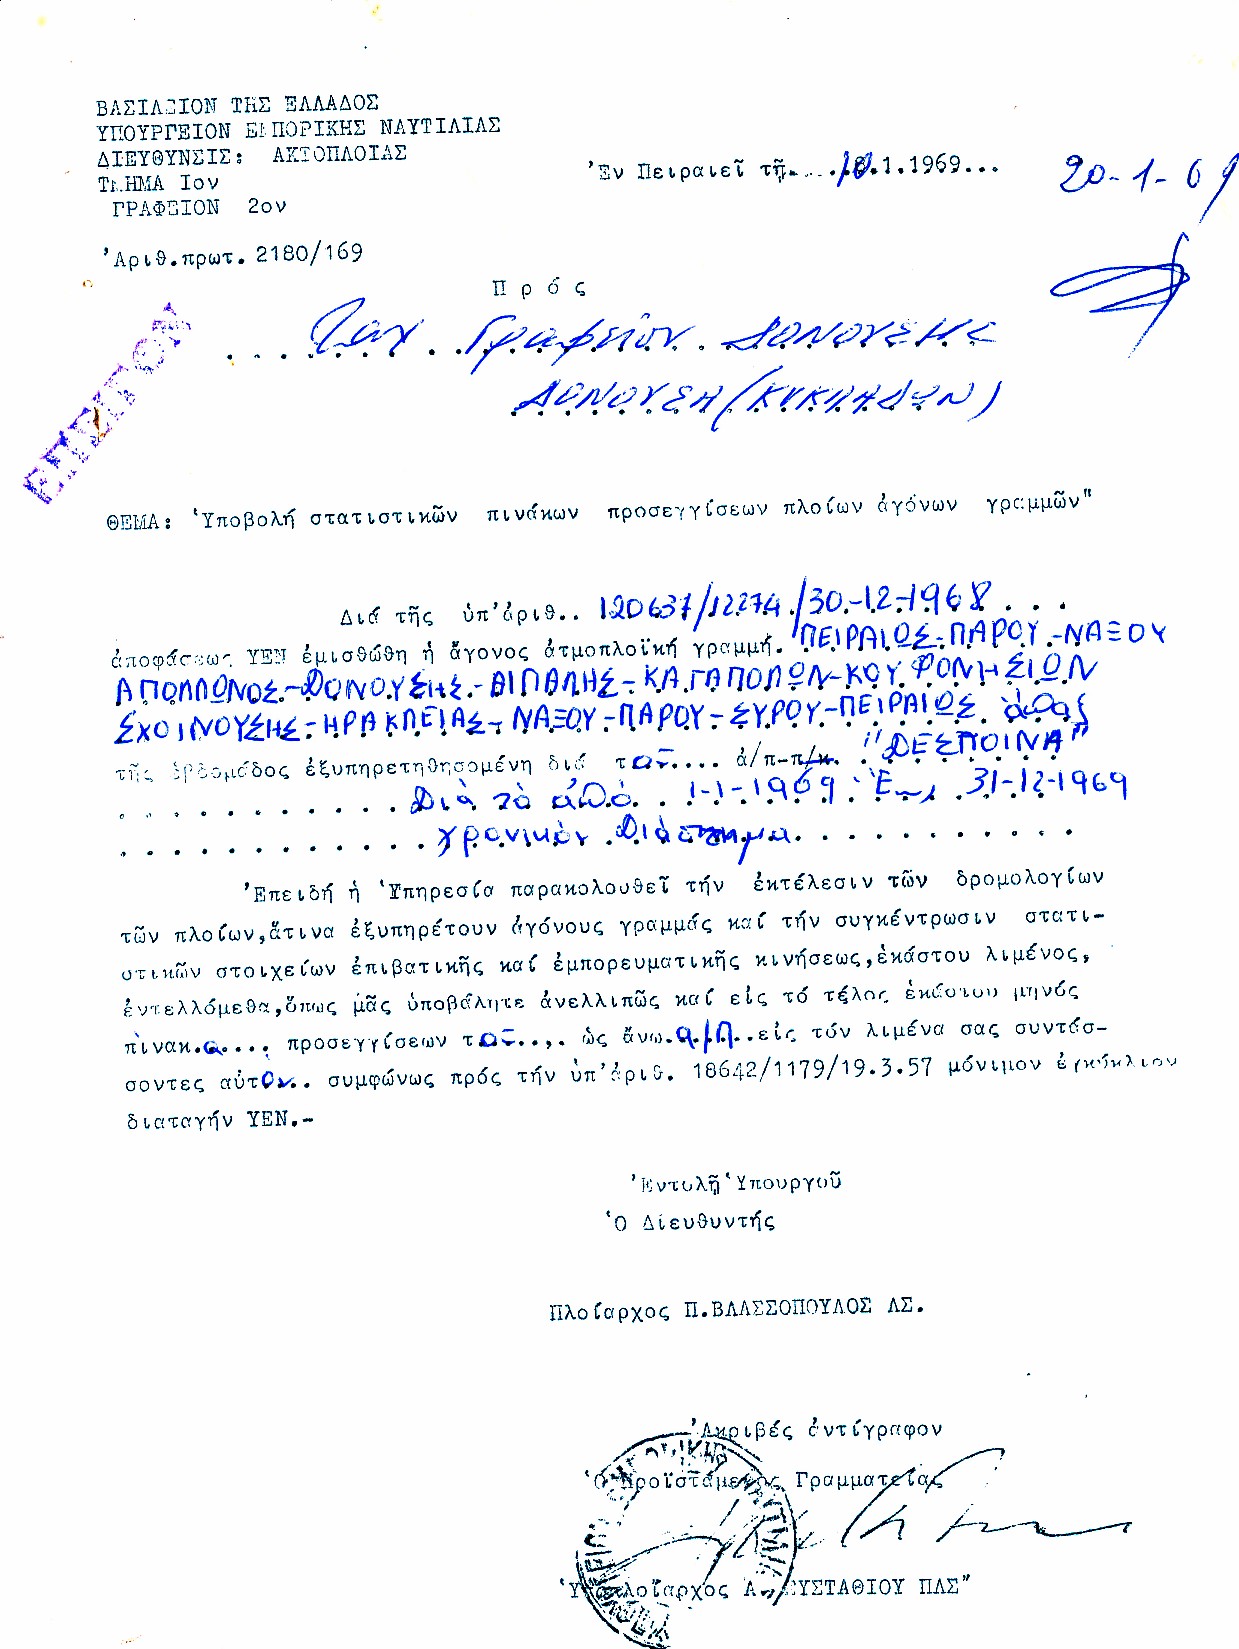 ΒΑΣΙΛΕΙΟΝ ΤΗΣ ΕΛΛΑΔΟΣ
ΥΠΟΥΡΓΕΙΟΝ ΕΜΠΟΡΙΚΗΣ ΝΑΥΤΙΛΙΑΣ
ΔΙΕΥΘΥΝΣΙΣ: ΑΚΤΟΠΛΟΙΑΣ
ΤΜΗΜΑ Ιον
ΓΡΑΦΕΙΟΝ 2ον
Ἐν Πειραιεῖ τῇ.....10.1.1969...
20-1-69
Ἀριθ.πρωτ. 2180/169
Π ρ ό ς
ΕΠΕΙΓΟΝ
Γραφεῖον ΔΟΝΟΥΣΗΣ
ΔΟΝΟΥΣΑ (ΚΥΚΛΑΔΩΝ)
ΘΕΜΑ: Ὑποβολή στατιστικῶν πινάκων προσεγγίσεων πλοίων ἀγόνων γραμμῶν"
Διά τῆς ὑπ'ἀριθ.. 120637/12274/30-12-1968...
ἀποφάσεως ΥΕΝ ἐμισθώθη ἡ ἄγονος ἀτμοπλοϊκή γραμμή. ΠΕΙΡΑΙΩΣ-ΠΑΡΟΥ-ΝΑΞΟΥ
ΑΠΟΛΛΩΝΟΣ-ΔΟΝΟΥΣΗΣ-ΑΙΓΙΑΛΗΣ-ΚΑΤΑΠΟΛΩΝ-ΚΟΥΦΟΝΗΣΙΩΝ
ΣΧΟΙΝΟΥΣΗΣ-ΗΡΑΚΛΕΙΑΣ-ΝΑΞΟΥ-ΠΑΡΟΥ-ΣΥΡΟΥ-ΠΕΙΡΑΙΩΣ ἅπαξ
τῆς ἑβδομάδος ἐξυπηρετηθησομένη διά τοῦ.... ἀ/π-π/κ. "ΔΕΣΠΟΙΝΑ"
.......... Διὰ τὸ ἀπὸ.. 1-1-1969 Ἕως 31-12-1969
............χρονικὸν Διάστημα...........
Ἐπειδή ἡ Ὑπηρεσία παρακολουθεῖ τήν ἐκτέλεσιν τῶν δρομολογίων
τῶν πλοίων,ἅτινα ἐξυπηρέτουν ἀγόνους γραμμάς καί τήν συγκέντρωσιν στατι-
στικῶν στοιχείων ἐπιβατικῆς καί ἐμπορευματικῆς κινήσεως,ἑκάστου λιμένος,
ἐντελλόμεθα,ὅπως μᾶς ὑποβάλητε ἀνελλιπῶς καί εἰς τό τέλος ἑκάστου μηνός
πίνακ.α.... προσεγγίσεων τοῦ..,. ὡς ἄνω.α/π..εἰς τόν λιμένα σας συντάσ-
σοντες αὐτον.. συμφώνως πρός τήν ὑπ'ἀριθ. 18642/1179/19.3.57 μόνιμον ἐγκύκλιον
διαταγήν ΥΕΝ.-
Ἐντολῇ Ὑπουργοῦ
Ὁ Διευθυντής
Πλοίαρχος Π.ΒΛΑΣΣΟΠΟΥΛΟΣ ΛΣ.
Ἀκριβές ἀντίγραφον
Ὁ Προϊστάμενος Γραμματείας
Ὑποπλοίαρχος Α. ΕΥΣΤΑΘΙΟΥ ΠΛΣ"